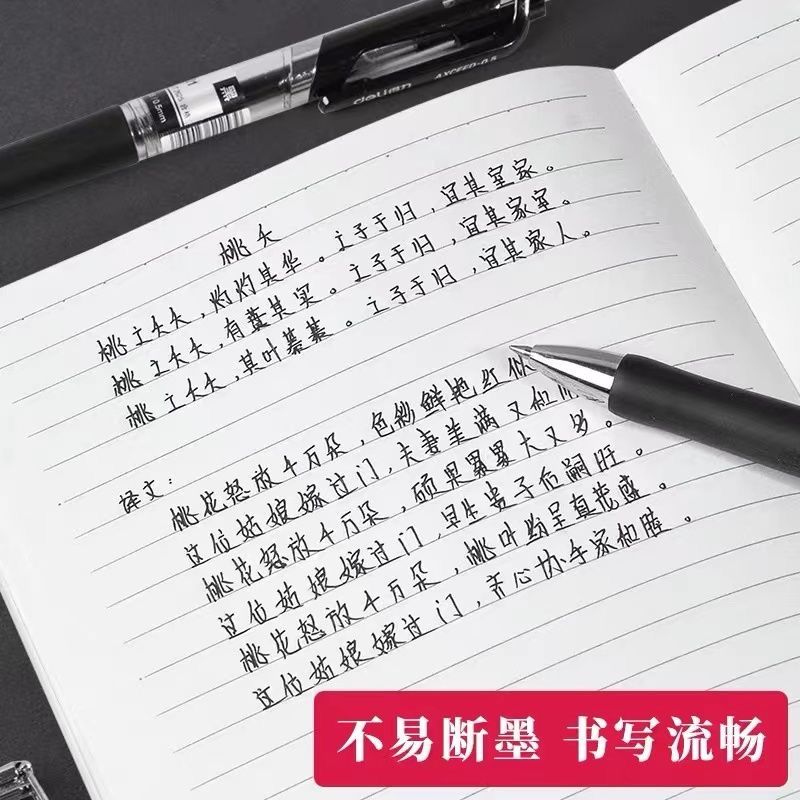 deli
AXCEED-0.5
0.5mm
桃夭
桃之夭夭，灼灼其华。之子于归，宜其室家。
桃之夭夭，有蕡其实。之子于归，宜其家室。
桃之夭夭，其叶蓁蓁。之子于归，宜其家人。
译文：
桃花怒放千万朵，色彩鲜艳红似
这位姑娘嫁过门，夫妻美满又和
桃花怒放千万朵，硕果累累大又多。
这位姑娘嫁过门，早生贵子后嗣旺。
桃花怒放千万朵，桃叶纷呈真茂盛。
这位姑娘嫁过门，齐心协手家和睦。
不易断墨 书写流畅